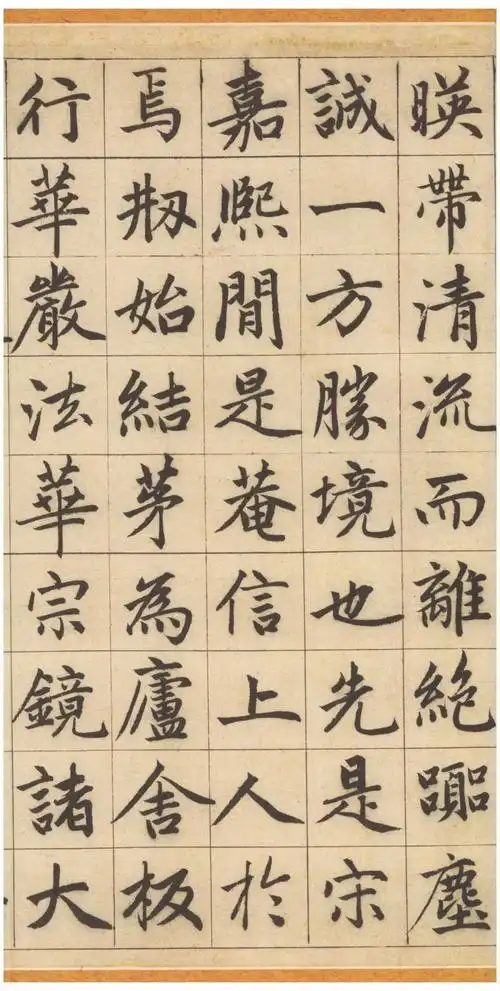 暎帶清流而離絕囂塵
誠一方勝境也先是宋
嘉熙間是菴信上人於
焉剏始結茅為廬舍板
行華嚴法華宗鏡諸大